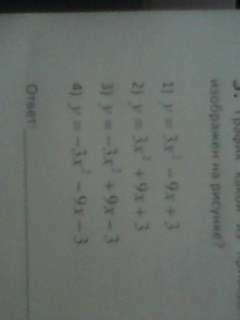 график какой из
изображен на рисунке?
1) y = 3x² − 9x + 3
2) y = 3x² + 9x + 3
3) y = −3x² + 9x − 3
4) y = −3x² − 9x − 3
Ответ: